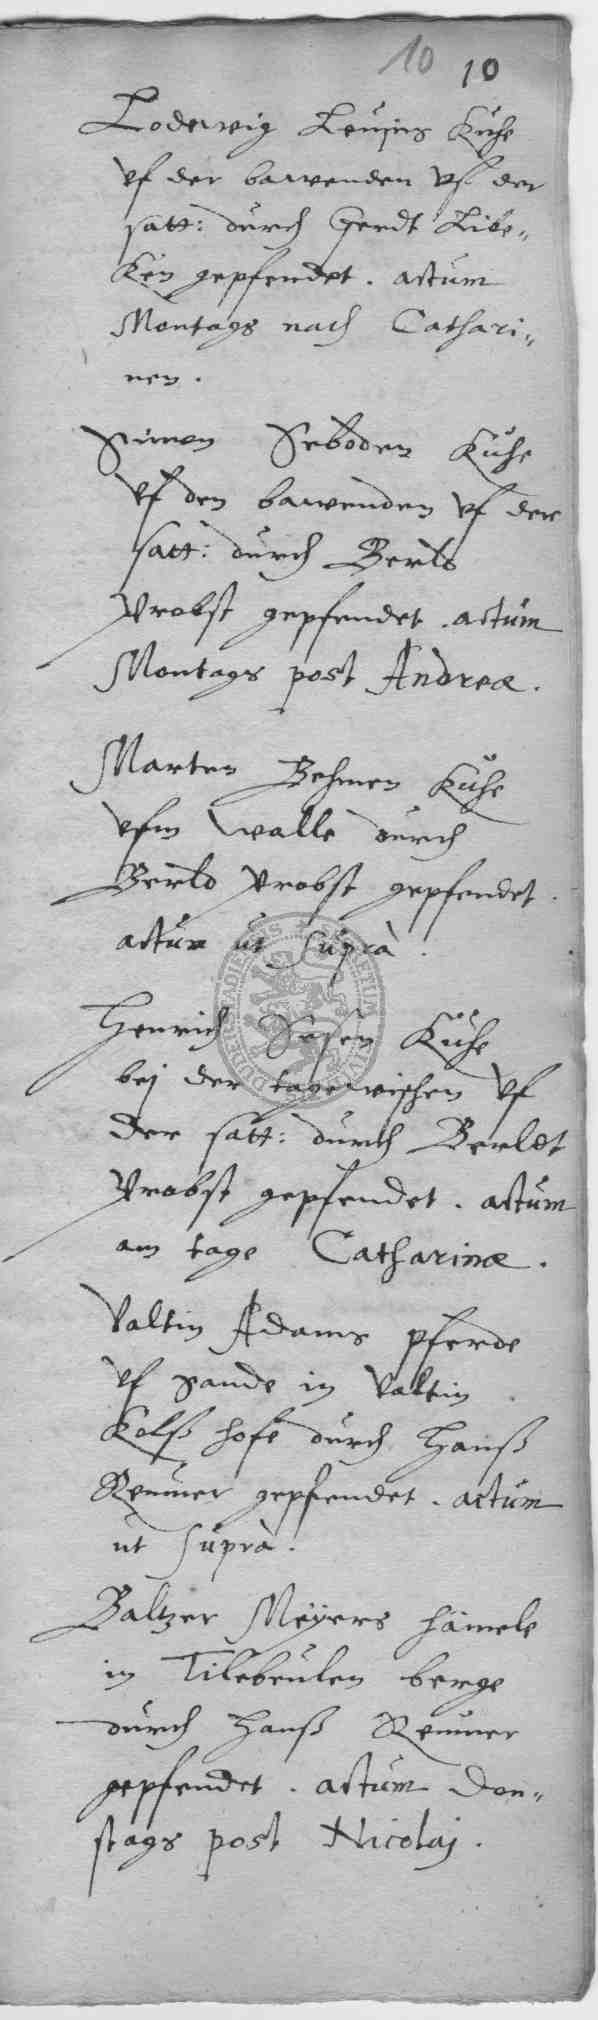 10 10
Lodewig Leusins Kühe
vf der bawenden vf der
satt: durch Gerdt Libe„
ken gepfendet. actum
Montags nach Cathari„
nen.
Simon Seboden Kühe
vf den bawenden vf der
satt: durch Berlt
Probst gepfendet. actum
Montags post Andreæ.
Marten Behmen Kühe
vfm walle durch
Berld Probst gepfendet.
actum ut suprà.
Henrich Sosen Kühe
bej der tagewischen vf
der satt: durch Berldt
Probst gepfendet. actum
am tage Catharinæ.
Valtin Adams pferde
vf sande in Valtin
Kolß hofe durch Hanß
Remmer gepfendet. actum
ut suprà.
Baltzer Meÿers hämele
in Tilebeulen berge
durch Hanß Remmer
gepfendet. actum Don„
stags post Nicolaj.